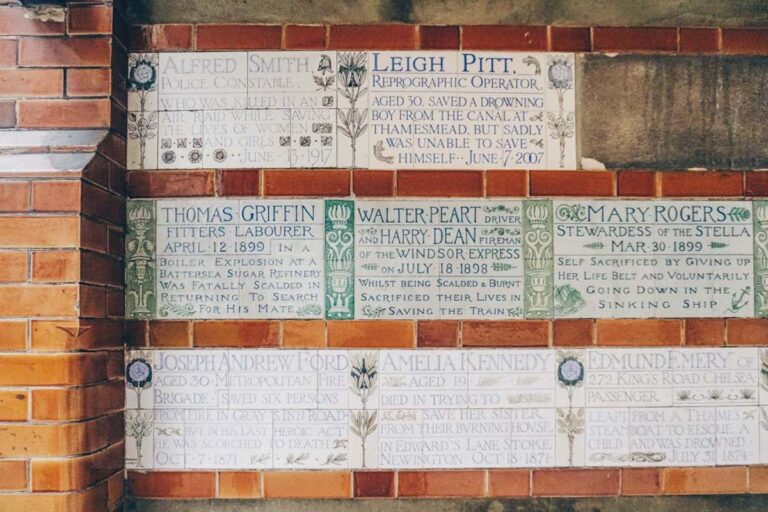 ALFRED SMITH
POLICE CONSTABLE
WHO WAS KILLED IN AN
AIR RAID WHILE SAVING
THE LIVES OF WOMEN
AND GIRLS
· JUNE · 13 · 1917
LEIGH PITT.
REPROGRAPHIC OPERATOR,
AGED 30, SAVED A DROWNING
BOY FROM THE CANAL AT
THAMESMEAD, BUT SADLY
WAS UNABLE TO SAVE
HIMSELF · JUNE · 7 · 2007
THOMAS GRIFFIN
FITTERS · LABOURER
APRIL · 12 · 1899 · IN A
BOILER EXPLOSION AT A
BATTERSEA SUGAR REFINERY
WAS FATALLY SCALDED IN
RETURNING TO SEARCH
FOR HIS MATE
WALTER · PEART DRIVER
AND HARRY · DEAN FIREMAN
OF THE WINDSOR EXPRESS
ON JULY 18 1898
WHILST BEING SCALDED & BURNT
SACRIFICED THEIR LIVES IN
SAVING THE TRAIN
MARY ROGERS
STEWARDESS OF THE STELLA
MAR · 30 · 1899
SELF SACRIFICED BY GIVING UP
HER LIFE BELT AND VOLUNTARILY
GOING DOWN IN THE
SINKING SHIP
JOSEPH ANDREW FORD
AGED 30 · METROPOLITAN FIRE
BRIGADE · SAVED SIX PERSONS
FROM FIRE IN GRAYS INN ROAD
BUT IN HIS LAST HEROIC ACT
HE WAS SCORCHED TO DEATH
OCT · 7 · 1871
AMELIA KENNEDY
AGED 19
DIED IN TRYING TO
SAVE HER SISTER
FROM THEIR BURNING HOUSE
IN EDWARD'S LANE STOKE
NEWINGTON OCT 18 1871
EDMUND EMERY OF
272 KING'S ROAD CHELSEA
PASSENGER
LEAPT FROM A THAMES
STEAMBOAT TO RESCUE A
CHILD AND WAS DROWNED
JULY 31 1874